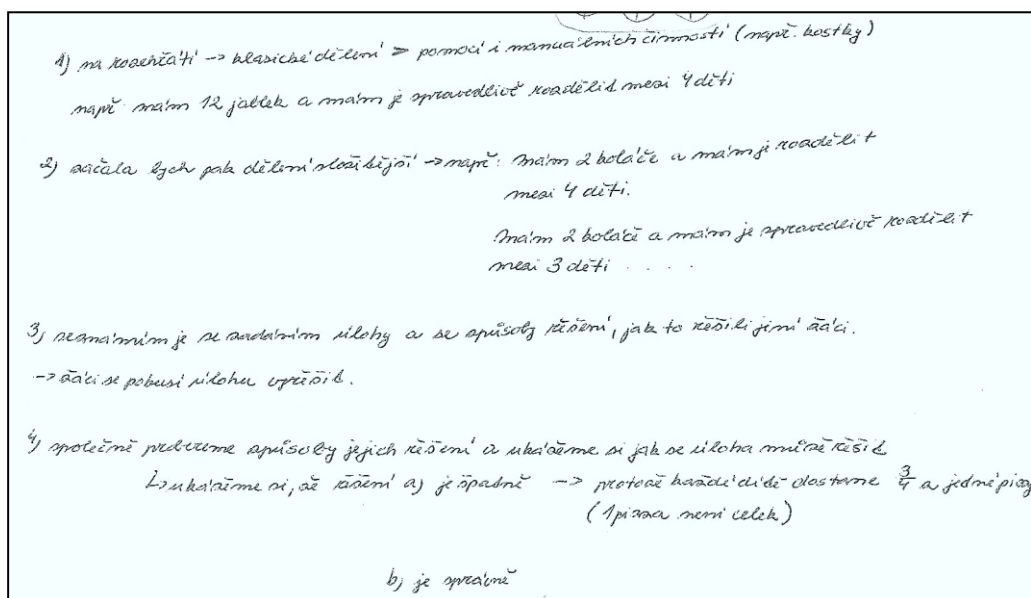 1) na rozehřátí → klasické dělení > pomocí i manuálních činností (např. kostky)
např. mám 12 jablek a mám je spravedlivě rozdělit mezi 4 děti
2) začala bych pak dělení složitější → např: Mám 2 koláče a mám je rozdělit
mezi 4 děti.
Mám 2 koláče a mám je spravedlivě rozdělit
mezi 3 děti . . . .
3) seznámím je se zadáním úlohy a se způsoby řešení, jak to řešili jiní žáci.
→ žáci se pokusí úlohu vyřešit.
4) společně probereme způsoby jejich řešení a ukážeme si jak se úloha může řešit
↳ ukážeme si, že řešení a) je špatně → protože každé dítě dostane 3/4 a jedné pizzy
(1 pizza není celek)
b) je správně